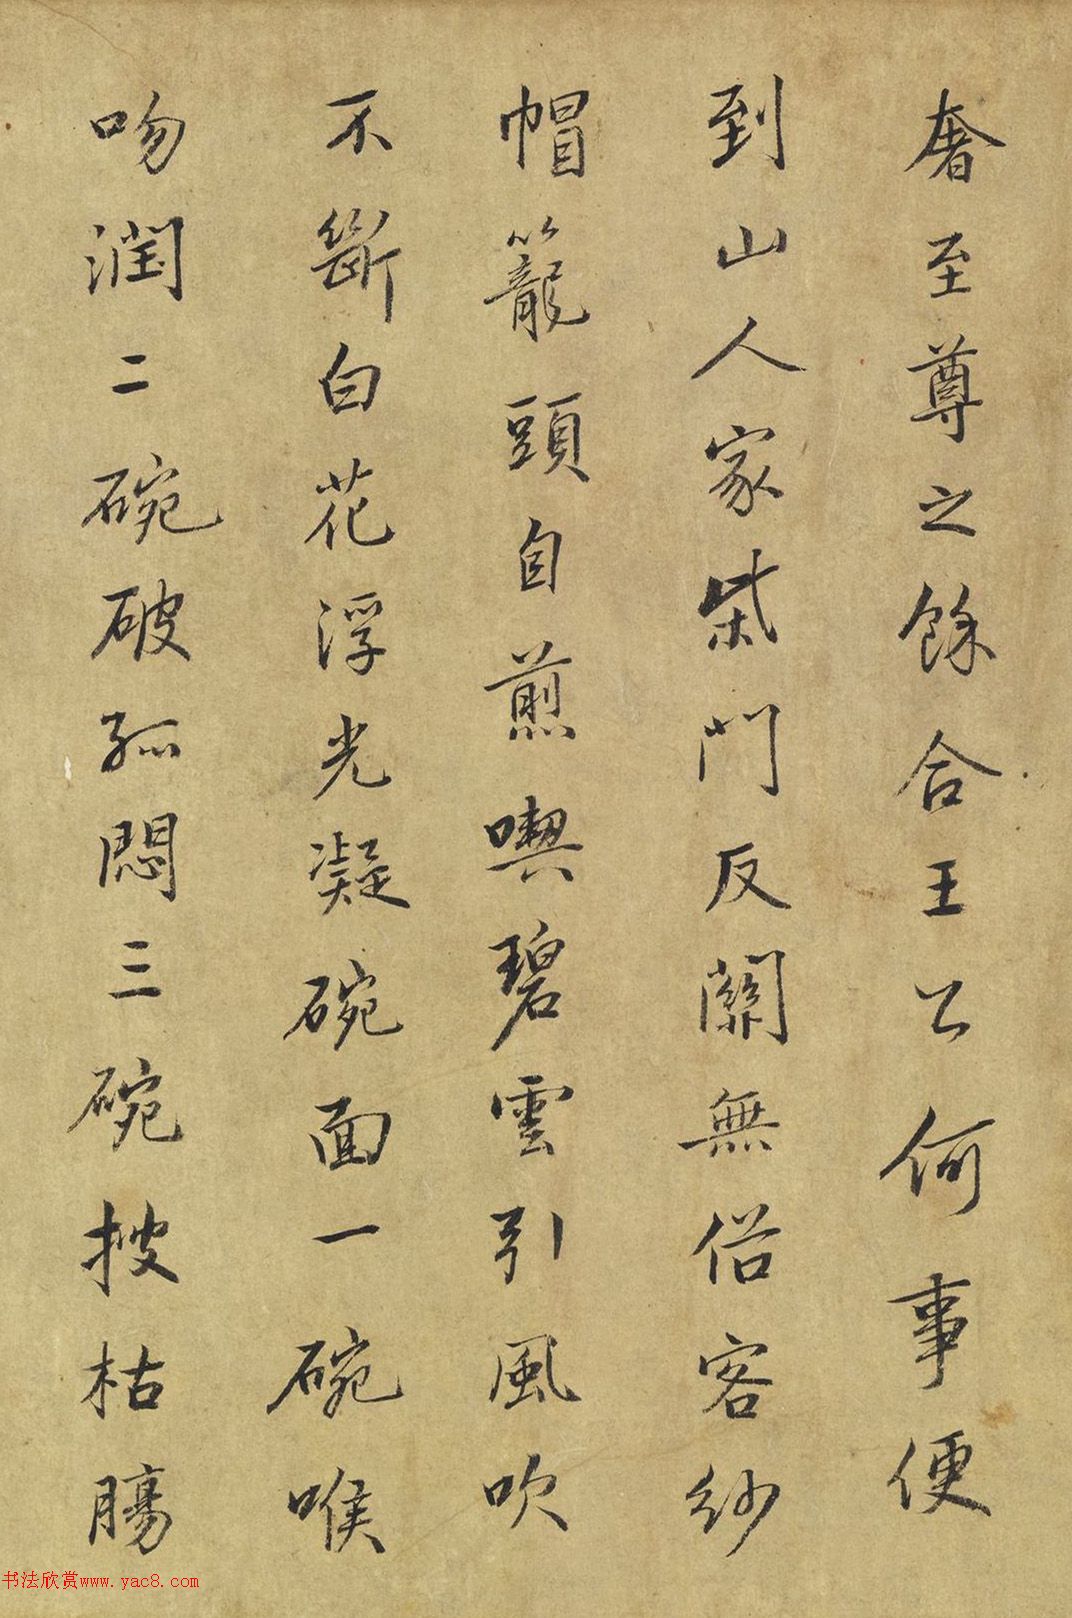 奢至尊之餘合王公何事便
到山人家柴門反關無俗客紗
帽籠頭自煎喫碧雲引風吹
不斷白花浮光凝碗面一碗喉
吻潤二碗破孤悶三碗搜枯腸
书法欣赏www.yac8.com